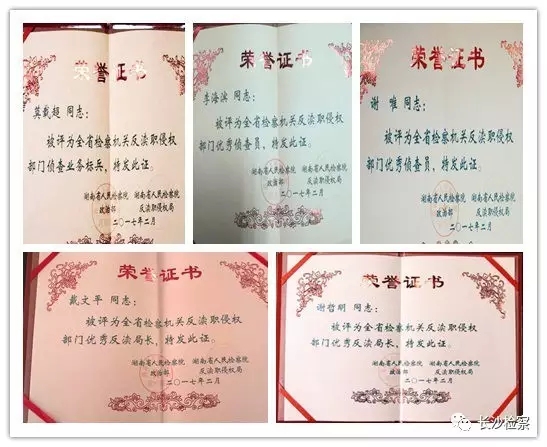 荣誉证书
莫载超 同志：
被评为全省检察机关反渎职侵权
部门侦查业务标兵，特发此证。
湖南省人民检察院
政治部
反渎职侵权局
二〇一七年二月
荣誉证书
李海滨 同志：
被评为全省检察机关反渎职侵权
部门优秀侦查员，特发此证。
湖南省人民检察院
政治部
反渎职侵权局
二〇一七年二月
荣誉证书
谢唯 同志：
被评为全省检察机关反渎职侵权
部门优秀侦查员，特发此证。
湖南省人民检察院
政治部
反渎职侵权局
二〇一七年二月
荣誉证书
戴文平 同志：
被评为全省检察机关反渎职侵权
部门优秀反渎局长，特发此证。
湖南省人民检察院
政治部 反渎职侵权局
二〇一七年二月
荣誉证书
谢哲明 同志：
被评为全省检察机关反渎职侵权
部门优秀反渎局长，特发此证。
湖南省人民检察院
政治部 反渎职侵权局
二〇一七年二月
长沙检察